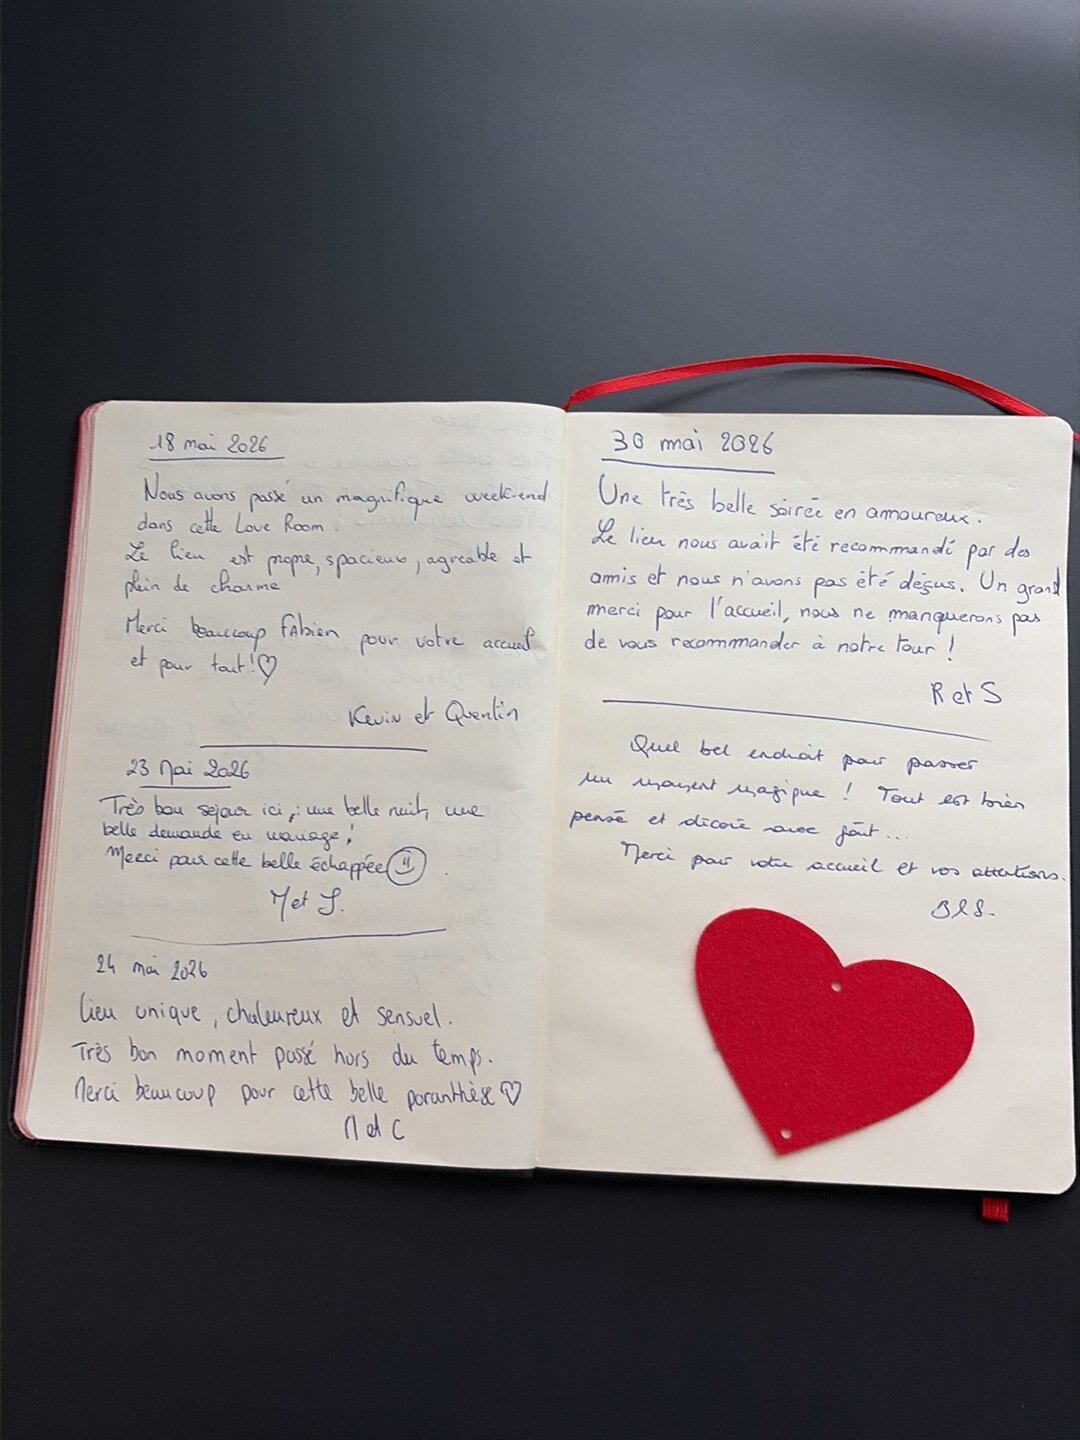 18 mai 2026
Nous avons passé un magnifique week-end
dans cette Love Room.
Le lieu est propre, spacieux, agréable et
plein de charme
Merci beaucoup FAbien pour votre accueil
et pour tout! ♡
Kevin et Quentin
23 Mai 2026
Très bon sejour ici, : une belle nuit, une
belle demande en mariage!
Merci pour cette belle échappée
M et J.
24 mai 2026
Lieu unique, chaleureux et sensuel.
Très bon moment passé hors du temps.
Merci beaucoup pour cette belle paranthèse ♡
M et C
30 mai 2026
Une très belle soirée en amoureux.
Le lieu nous avait été recommandé par des
amis et nous n'avons pas été déçus. Un grand
merci pour l'accueil, nous ne manquerons pas
de vous recommander à notre tour !
R et S
Quel bel endroit pour passer
un moment magique ! Tout est bien
pensé et décoré avec goût...
Merci pour votre accueil et vos attentions.